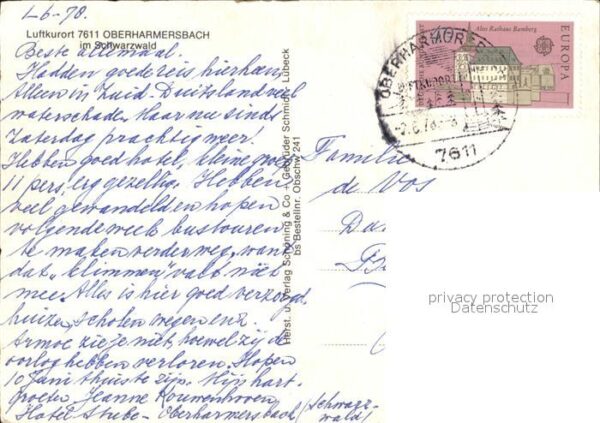 1-6-78.
Luftkurort 7611 OBERHARMERSBACH
im Schwarzwald
Beste allemaal.
Hadden goede reis hierheen
Alleen in Zuid-Duitsland veel
waterschade. Maar nu sinds
Zaterdag prachtig weer!
Hebben goed hotel, kleine groep
11 pers. erg gezellig. Hebben
veel gewandeld en hopen
volgende week bustouren
te maken verder weg, want
dat "klimmen" valt niet
mee. Alles is hier goed verzorgd,
huizen, scholen wegen enz.
Armoe zie je niet, hoewel zij de
oorlog hebben verloren. Hopen
10 Juni thuis te zijn. Mijn hart.
groeten Jeanne Kouwenhoven
Hotel Stube - Oberharmersbach (Schwarz-
wald)
Herst. u. Verlag Schöning & Co + Gebrüder Schmidt, Lübeck
bs Bestellnr. Obschw 241
Altes Rathaus Bamberg
EUROPA
7611
Familie
de Vos
privacy protection
Datenschutz